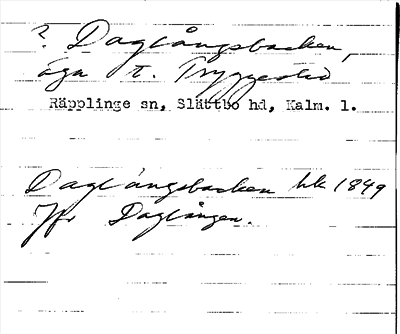 ? Daglångsbacken,
äga t. Tryggestad
Räpplinge sn, Slättbo hd, Kalm. l.
Daglångsbacken hk 1849
Jfr Daglången.